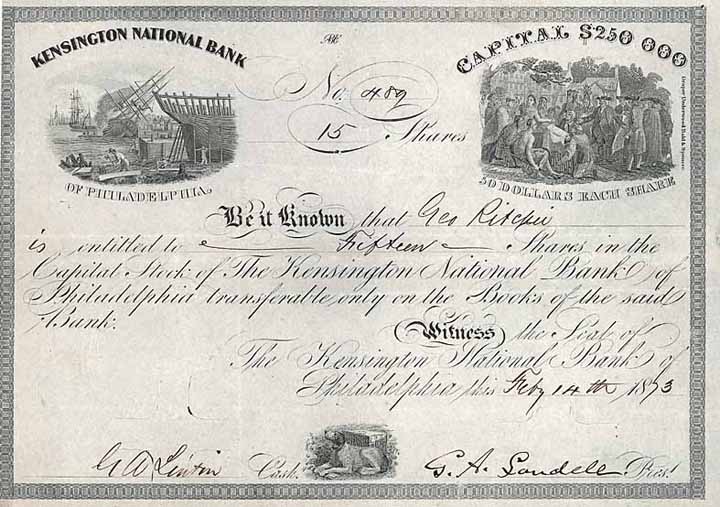 KENSINGTON NATIONAL BANK
OF PHILADELPHIA.
No. 489
15 Shares
CAPITAL $250 000
50 DOLLARS EACH SHARE
Be it Known that Geo
is entitled to Fifteen Shares in the
Capital Stock of The Kensington National Bank of
Philadelphia transferable only on the Books of the said
Bank.
Witness the Seal of
The Kensington National Bank of
Philadelphia this Feby 14th 1873
Cash.
G. A. Landell Pres.